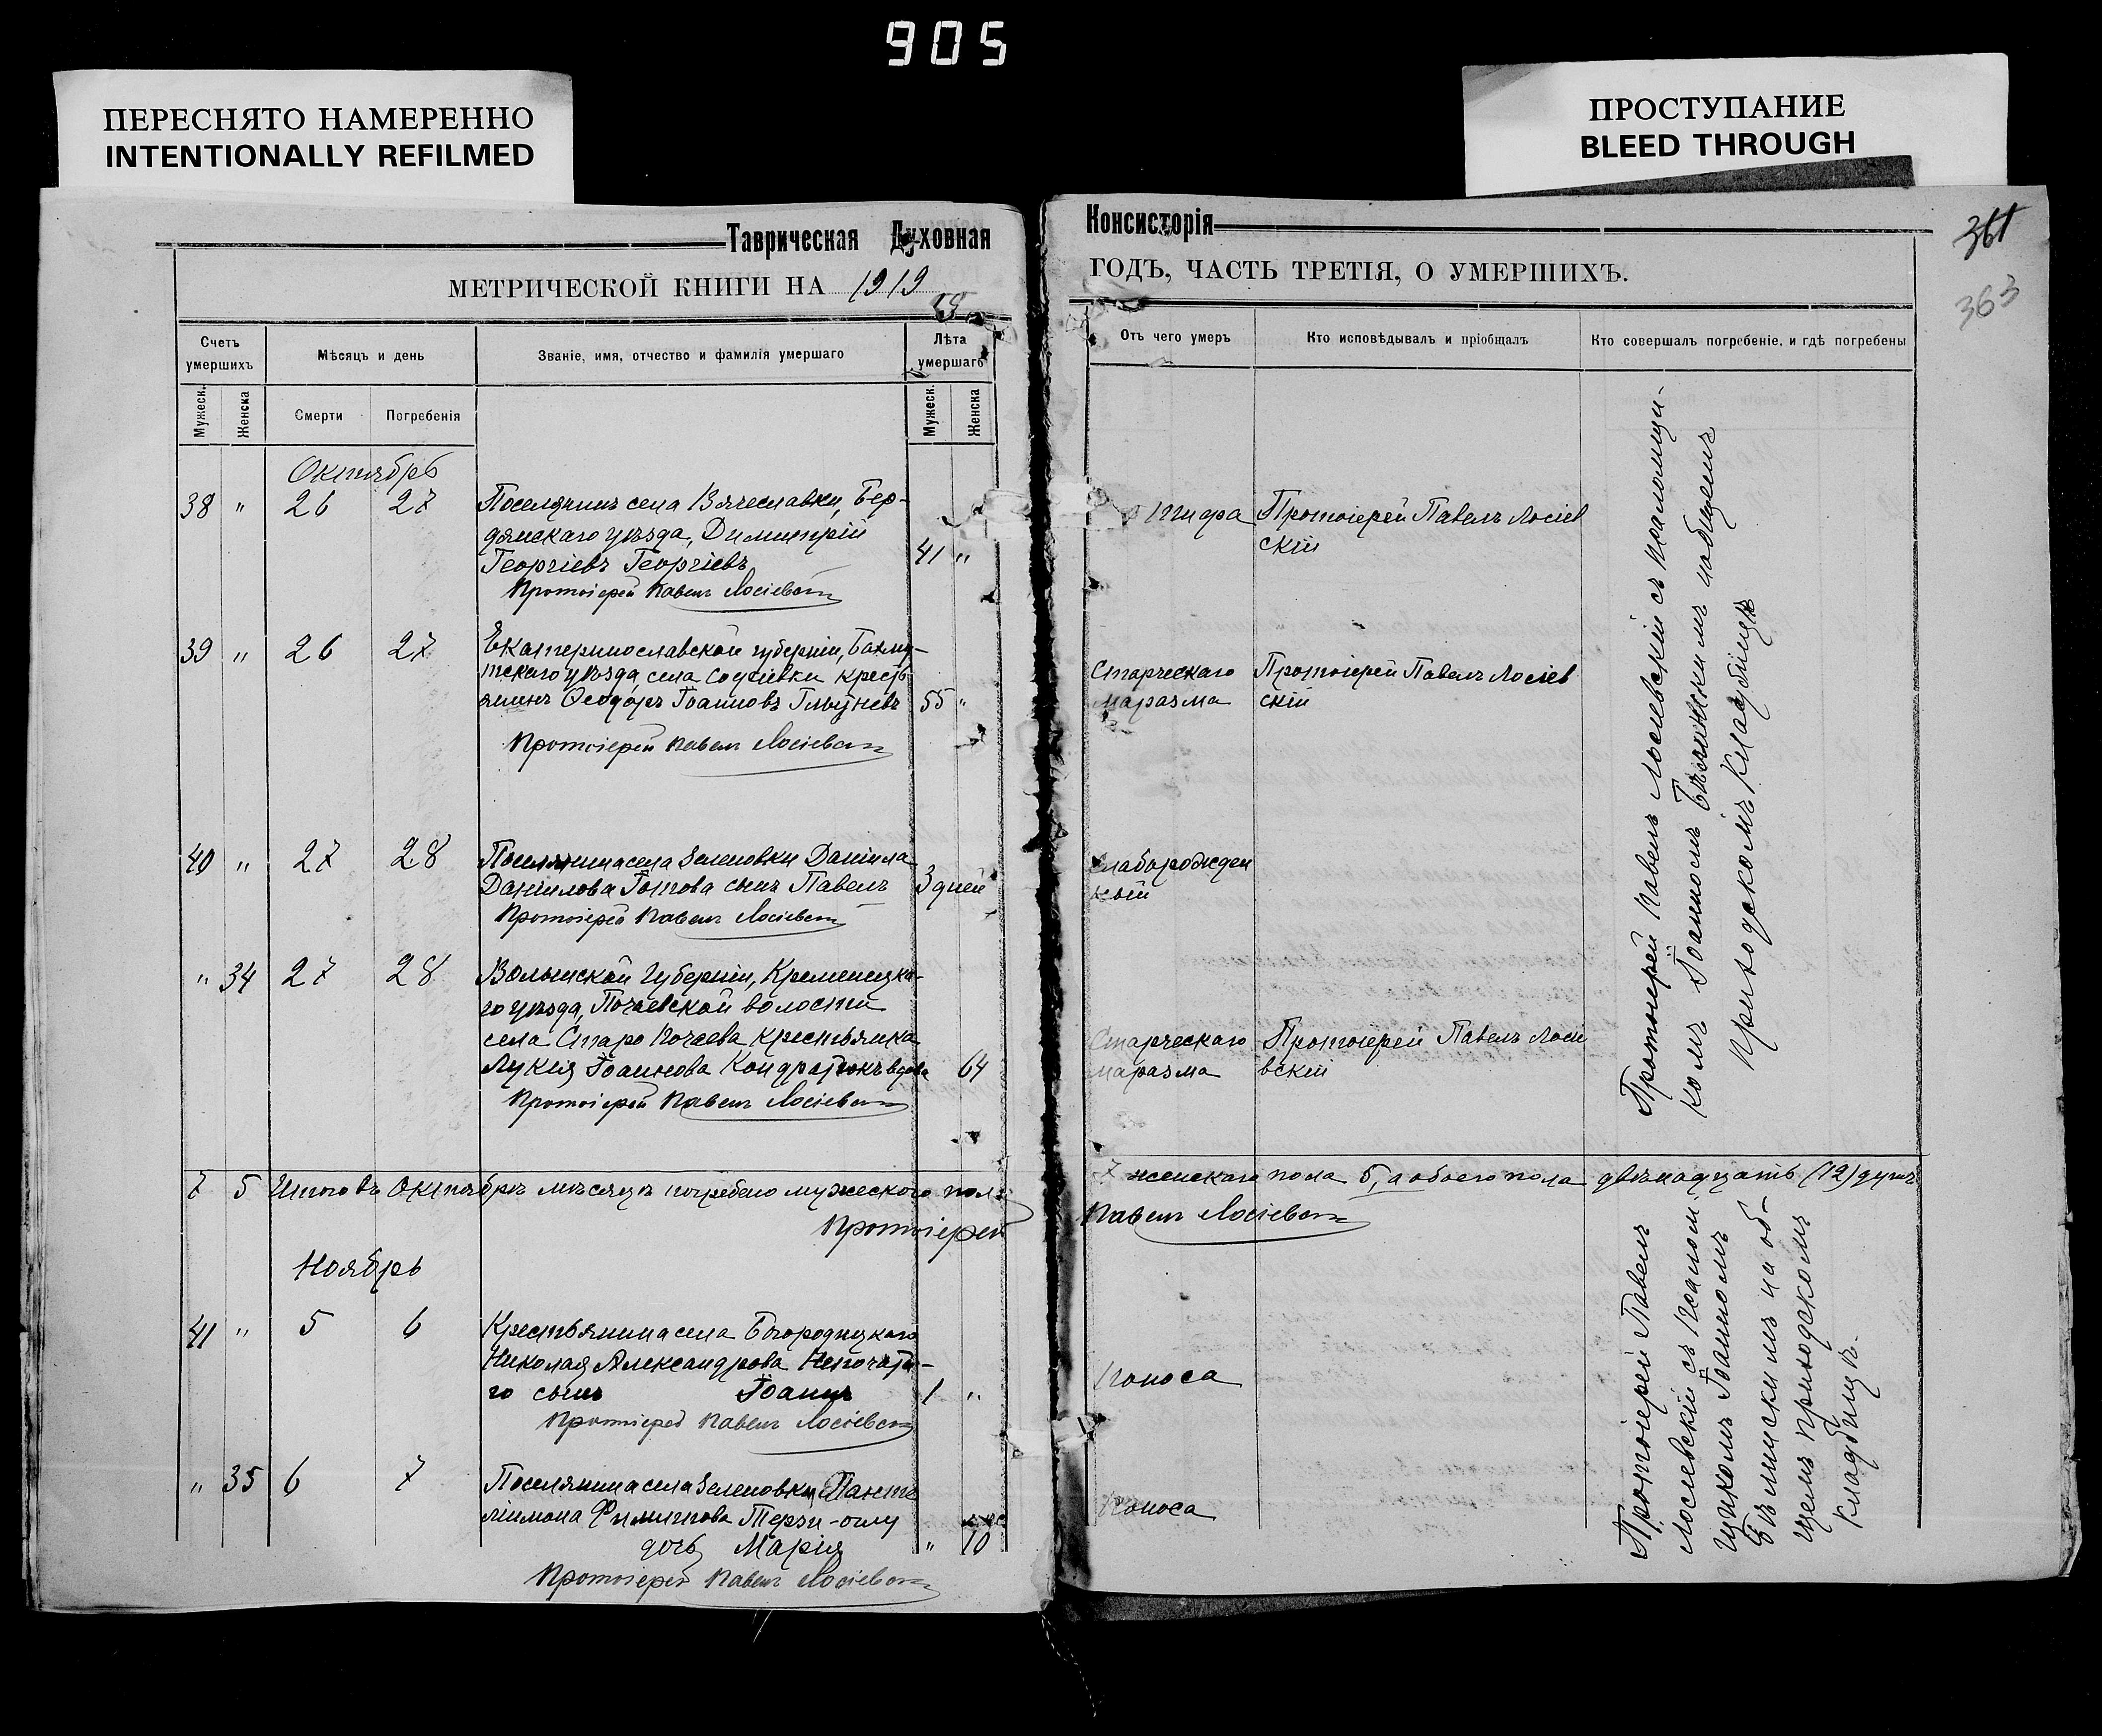 905
ПЕРЕСНЯТО НАМЕРЕННО
INTENTIONALLY REFILMED
ПРОСТУПАНИЕ
BLEED THROUGH
Таврическая Духовная
Консисторія
361
363
МЕТРИЧЕСКОЙ КНИГИ НА 1919
ГОДЪ, ЧАСТЬ ТРЕТІЯ, О УМЕРШИХЪ.
Счетъ умершихъ
Мѣсяцъ и день
Званіе, имя, отчество и фамилія умершаго
Лѣта умершаго
Отъ чего умеръ
Кто исповѣдывалъ и пріобщалъ
Кто совершалъ погребеніе, и гдѣ погребены
Мужеск.
Женска
Смерти
Погребенія
Мужеск.
Женска
Октябрь
38 " 26 27 Поселянинъ села Вячеславки, Бер-
дянскаго уѣзда, Димитрій
Георгіевъ Георгіевъ 41 "
Протоіерей Павелъ Лосіевскій
Тифа
Протоіерей Павелъ Лосіев
скій
39 " 26 27 Екатеринославской губерніи, Бахму-
тскаго уѣзда, села кресть
янинъ Ѳеодоръ Іоанновъ 55 "
Протоіерей Павелъ Лосіевскій
Старческаго
маразма
Протоіерей Павелъ Лосіев
скій
40 " 27 28 Поселянина села Зеленовки Даніила
Даніилова сынъ Павелъ 3 дней
Протоіерей Павелъ Лосіевскій
Слаборожден
ный
" 34 27 28 Волынской губерніи, Кременецка-
го уѣзда, Почаевской волости
села Старо Почаева крестьянка
Лукія Іоаннова Кондратюкъ вдова 64
Протоіерей Павелъ Лосіевскій
Старческаго
маразма
Протоіерей Павелъ Лосіе
вскій
Протоіерей Павелъ Лосіевскій съ псаломщи-
комъ Іоанномъ на общемъ
приходскомъ кладбищѣ
7 5 Итого въ Октябрѣ мѣсяцѣ погребено мужеского пола
7 женскаго пола 5, а обоего пола двѣнадцать (12) душъ
Протоіерей
Павелъ Лосіевскій
Ноябрь
41 " 5 6 Крестьянина села Богородицкаго
Николая Александрова Непочато-
го сынъ Іоаннъ 1 "
Протоіерей Павелъ Лосіевскій
Поноса
" 35 6 7 Поселянина села Зеленовки Панте
лимона Филиппова Терзи-оглу
дочь Марія " 10
Протоіерей Павелъ Лосіевскій
Поноса
Протоіерей Павелъ
Лосіевскій съ псалом
щикомъ Іоанномъ
на об-
щемъ приходскомъ
кладбищѣ.